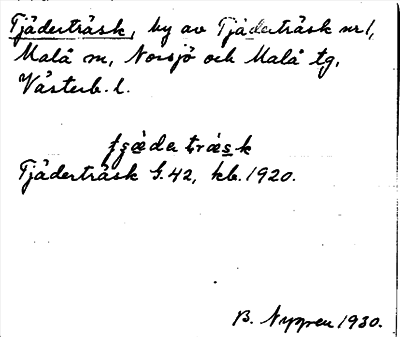 Tjäderträsk, by av Tjäderträsk nr 1,
Malå sn, Norsjö och Malå tg,
Västerb. l.
Tjäderträsk G. 42, kb. 1920.
B. Nygren 1930.